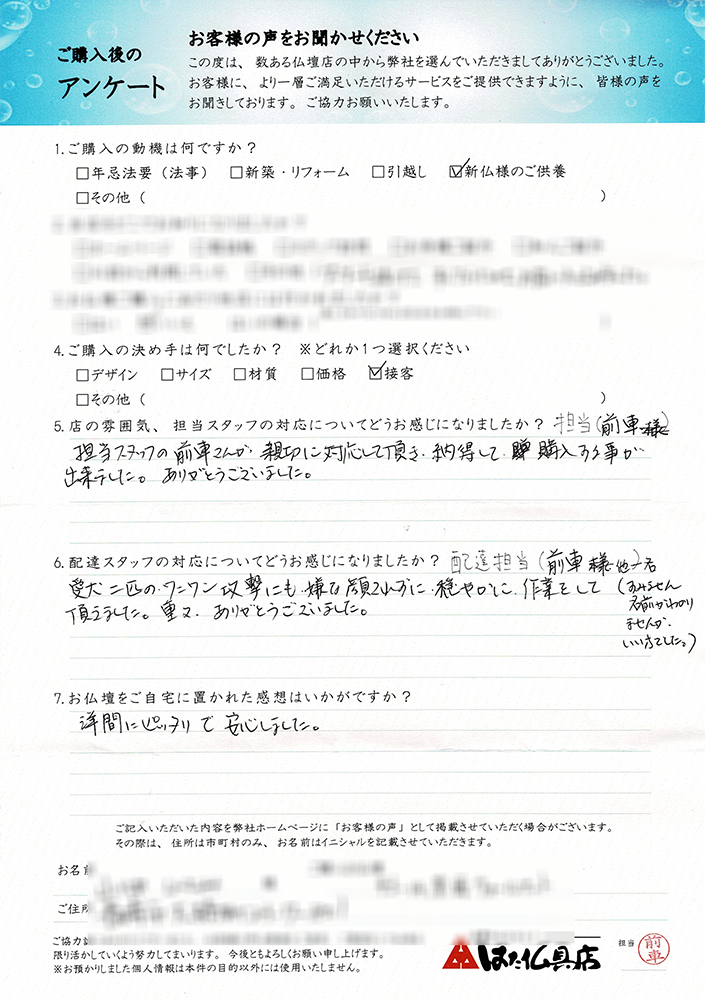 ご購入後の
アンケート
お客様の声をお聞かせください
この度は、数ある仏壇店の中から弊社を選んでいただきましてありがとうございました。
お客様に、より一層ご満足いただけるサービスをご提供できますように、皆様の声を
お聞きしております。ご協力お願いいたします。
1.ご購入の動機は何ですか？
□年忌法要（法事） □新築・リフォーム □引越し ☑新仏様のご供養
□その他（ ）
4.ご購入の決め手は何でしたか？ ※どれか1つ選択ください
□デザイン □サイズ □材質 □価格 ☑接客
□その他（ ）
5.店の雰囲気、担当スタッフの対応についてどうお感じになりましたか？ 担当（前車様）
担当スタッフの前車さんが親切に対応して頂き、納得して 購入する事が
出来ました。ありがとうございました。
6.配達スタッフの対応についてどうお感じになりましたか？ 配達担当（前車様 他一名
愛犬二匹のワンワン攻撃にも嫌な顔されずに、穏やかに作業をして
頂きました。重ね、ありがとうございました。
（すみません
名前がわかり
ませんが、
いい方でした。）
7.お仏壇をご自宅に置かれた感想はいかがですか？
洋間にピッタリで安心しました。
ご記入いただいた内容を弊社ホームページに「お客様の声」として掲載させていただく場合がございます。
その際は、住所は市町村のみ、お名前はイニシャルを記載させていただきます。
お名前
ご住所
ご協力
限り活かしていくよう努力してまいります。今後ともよろしくお願い申し上げます。
※お預かりしました個人情報は本件の目的以外には使用いたしません。
はた仏具店
担当 前車